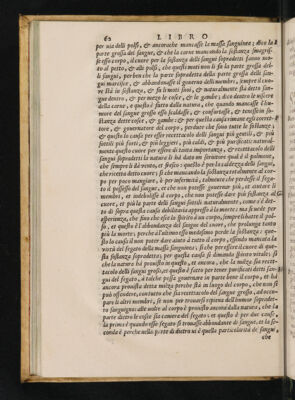 62 LIBRO
per uia delli polsi, & ancorache mancasse la massa sanguinea: dico la
parte grossa del sangue, & che la carne mancando la sostanza smagris-
se esso corpo, il cuore per la sostanza delli sopradetti fanno
do al petto, & alli polsi, che questi moti non li fa la parte grossa del-
li sangui, perben che la parte sopradetta della parte grossa delli san-
gui marcisce, & abbandonasse il gouerno delli membri, sempre il cuo-
re stà in sostanza, & fa li moti suoi, & naturalmente stà detto san-
gue dentro, & per mezo le coste, & le gambe; dico dentro le uiscere
della carne, e questo è fatto dalla natura, che quando mancasse l'hu-
more del sangue grosso esso soccorresse, & confortasse, & tenesse in so-
stanza dette coste, & gambe: & per questa causa il cuore egli corret-
tore, & gouernatore del corpo, perdare che sono tutte le sostanze,
& questo lo causa per esser recettacolo delli sangui più gentili, & più
sottili più forti, & più leggieri, più caldi, & più purificati: natural-
mente questo cuore per essere di tanta importanza, & recettacolo delli
sangui sopradetti la natura le hà dato un seruitore quale è il polmone,
che sempre li dà vento, e rinfresca: questo è per la caldezza delli sangui,
che riceue detto cuore; si che mancando la sostanza naturale al cor-
po per poco mangiare, è per infermità, talmente che perdesse il fega-
to il possesso del sangue, et che non potesse gouernar più, et aiutare il
membri, et indebolisse il corpo, che non potesse dare più sostanza al
cuore, et più la parte delli sangui sottili naturalmente, come è det-
to di sopra questa causa debilitaria appresso la morte: ma scuode per
esperienza, che fino che esce lo spirito à un corpo, sempre li batte il pol-
so, et questo è l'abbondanza del sangue del cuore, che prolunga tanto
più la morte; perche all'ultimo esso medesimo perde la sostanza: que-
sto lo causa il non poter dare aiuto à tutto il corpo, essendo mancata la
uirtù del fegato della massa sanguinea; si che per essere il cuore di que-
sta sostanza sopradetta; per questa causa si domanda spirito uitale; si
che la natura hà prouisto in questo, et ancora, che la milza sia recet-
tacolo delli sangui grossi, et questo è fatto per tener purificati detti san-
gui del fegato, à talche possa gouernare in parte bene il corpo, et hà
ancora prouisto detta milza perche stà in luogo del corpo, che non si
può offendere, contutto che sia recettacolo del sangue grosso, ad occu-
pare li altri membri, se non per trouarsi ripiena dell'humor sopradet-
to sanguigno: alle uolte al corpo è prouisto ancora dalla natura, che la
parte dietro le coste sia couerta del fegato: et questo è per due cause,
la prima è quando esso fegato si trouasse abbondante di sangue, et la se-
conda è perche nella parte di dietro ui è quella particolarità de' sangue
che